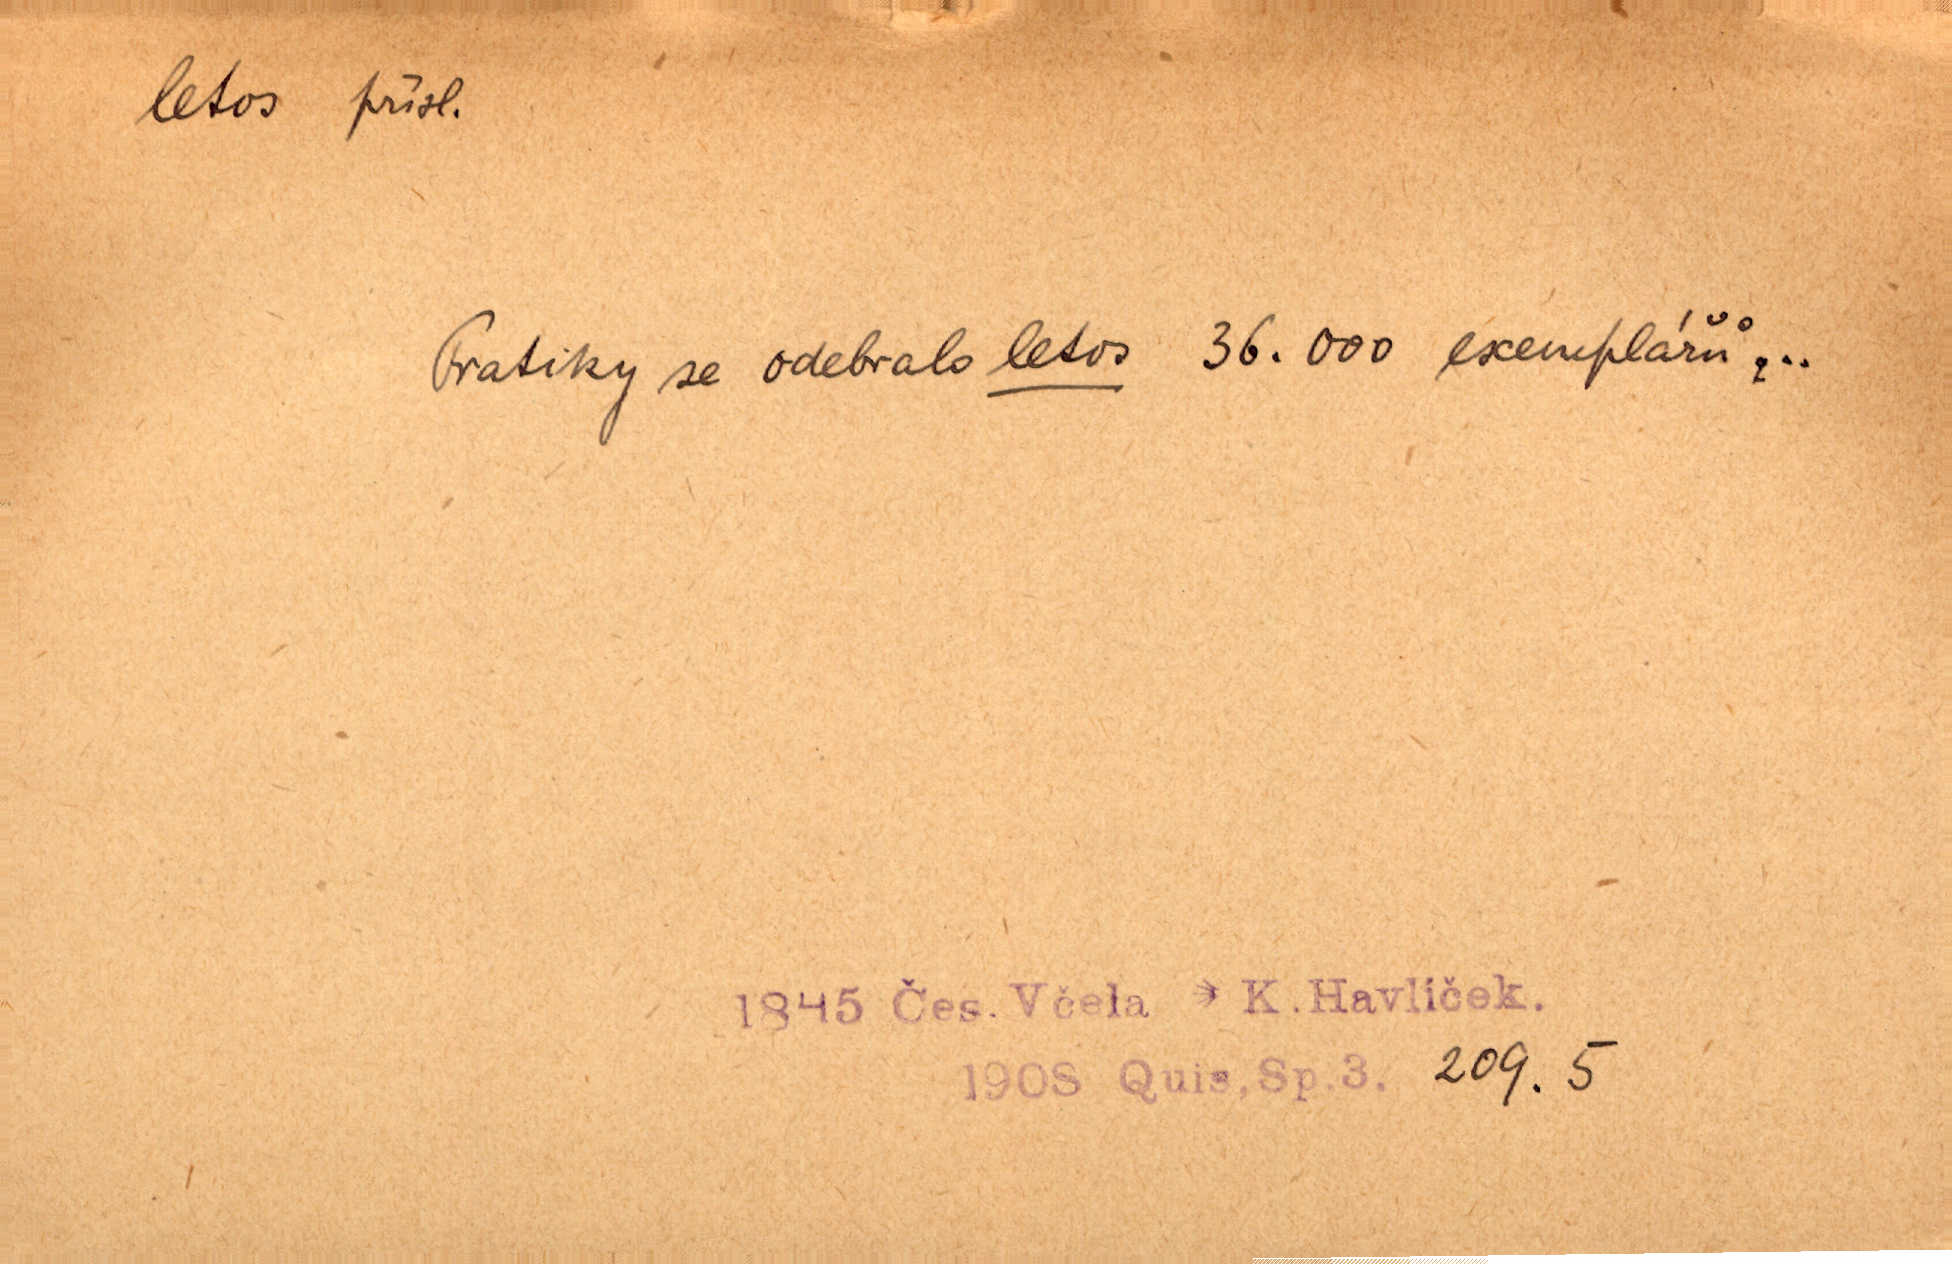 letos přísl.
Pratiky se odebralo letos 36.000 exemplářů,..
1845 Čes. Včela * K. Havlíček.
1908 Quis, Sp. 3. 209. 5